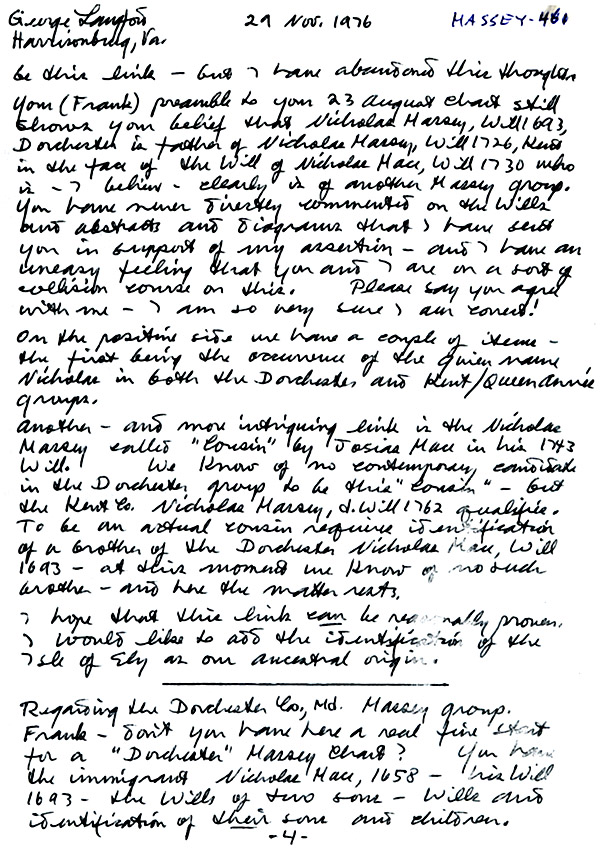 George Langford 29 Nov. 1976 MASSEY-461
Harrisonburg, Va.
be this link – but I have abandoned this thought.
Your (Frank) preamble to your 23 August chart still
shows your belief that Nicholas Massey, Will 1693,
Dorchester is father of Nicholas Massey, Will 1726, Kent
in the face of the Will of Nicholas Mace, Will 1730 who
is – I believe – clearly is of another Massey group.
You have never directly commented on the Wills
and abstracts and diagrams that I have sent
you in support of my assertion – and I have an
uneasy feeling that you and I are on a sort of
collision course on this. Please say you agree
with me – I am so very sure I am correct!
On the positive side we have a couple of items –
the first being the occurrence of the given name
Nicholas in both the Dorchester and Kent/Queen Anne
groups.
Another – and more intriguing link is the Nicholas
Massey called "Cousin" by Josias Mace in his 1743
Will. We know of no contemporary candidate
in the Dorchester group to be this "cousin" – but
the Kent Co. Nicholas Massey, d. Will 1762 qualifies.
To be an actual cousin requires identification
of a brother of the Dorchester Nicholas Mace, Will
1693 – at this moment we know of no such
brother – and here the matter rests.
I hope that this link can be reasonably proven.
I would like to add the identification of the
Isle of Ely as our ancestral origin.
Regarding the Dorchester Co., Md. Massey group.
Frank – don't you have here a real fine start
for a "Dorchester" Massey Chart? You have
the immigrant Nicholas Mace, 1658 – his Will
1693 – the Wills of two sons – Wills and
identification of their sons and children.
-4-